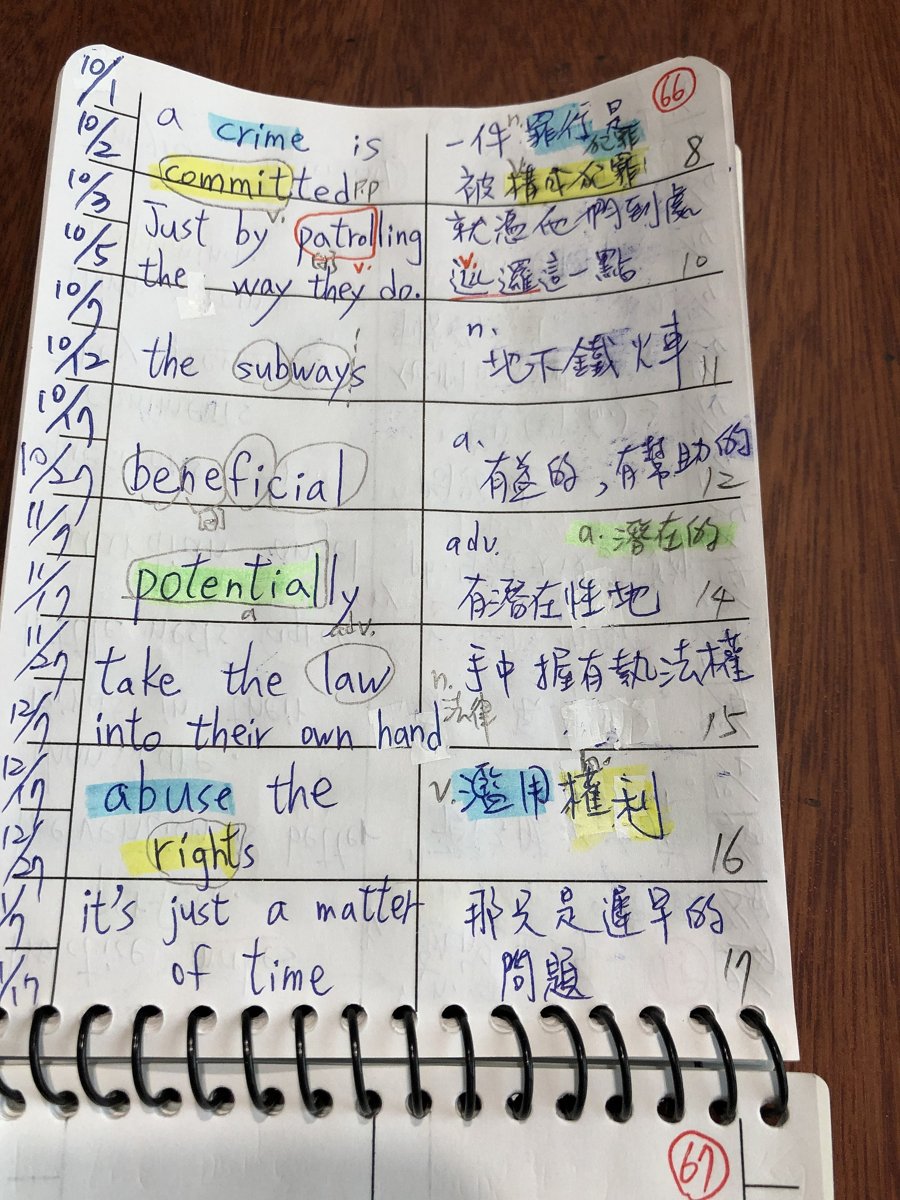 66
10/1
10/2
10/3
10/5
10/7
10/12
10/17
10/27
11/7
11/17
11/27
12/7
12/17
12/27
1/7
1/17
a crime is
committed P.P
v.
n.
一件罪行是
犯罪
v.
被構成犯罪
8
Just by patrolling
v.
the way they do.
就憑他們到處
v.
巡邏這一點
10
the subways
n.
地下鐵火車
11
beneficial
a.
有益的，有幫助的
12
potentially
a
adv.
adv.
a. 潛在的
有潛在性地
14
take the law
into their own hand
n.
法律
手中握有執法權
15
abuse the
rights
v. 濫用權利
n.
16
it's just a matter
of time
那只是遲早的
問題
17
67